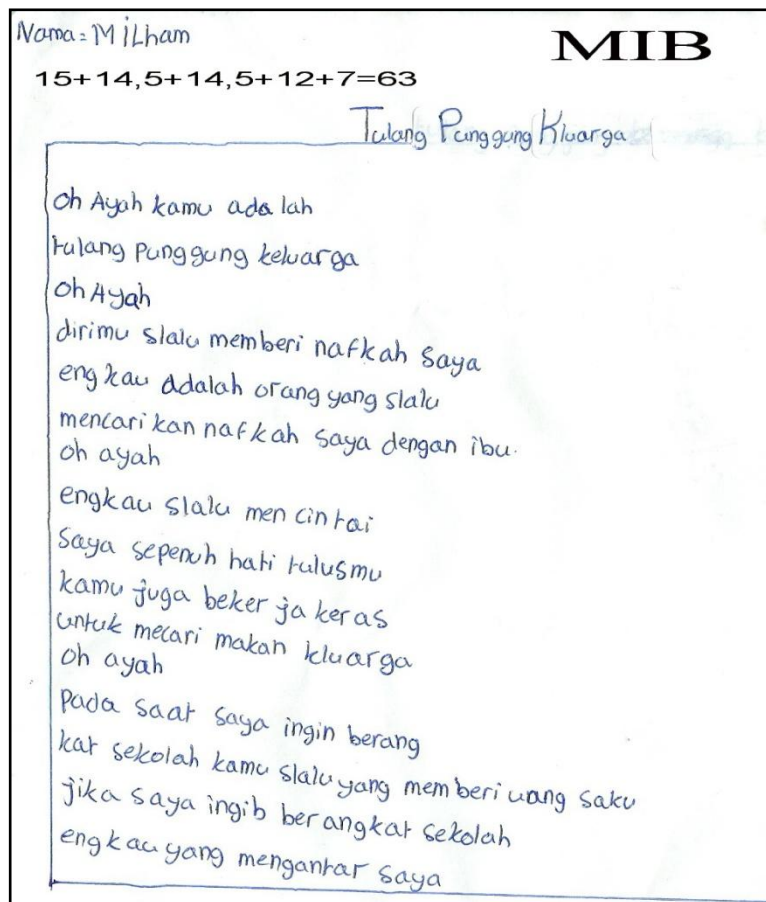 Nama = M iLham
MIB
15+14,5+14,5+12+7=63
Tulang Punggung Kluarga
oh Ayah kamu ada lah
tulang punggung keluarga
oh Ayah
dirimu slalu memberi nafkah saya
engkau adalah orang yang slalu
mencari kan nafkah saya dengan ibu.
oh ayah
engkau slalu men cintai
saya sepenuh hati tulusmu
kamu juga beker ja keras
untuk mecari makan kluarga
oh ayah
pada saat saya ingin berang
kat sekolah kamu slalu yang memberi uang saku
jika saya ingib berangkat sekolah
engkau yang mengantar saya